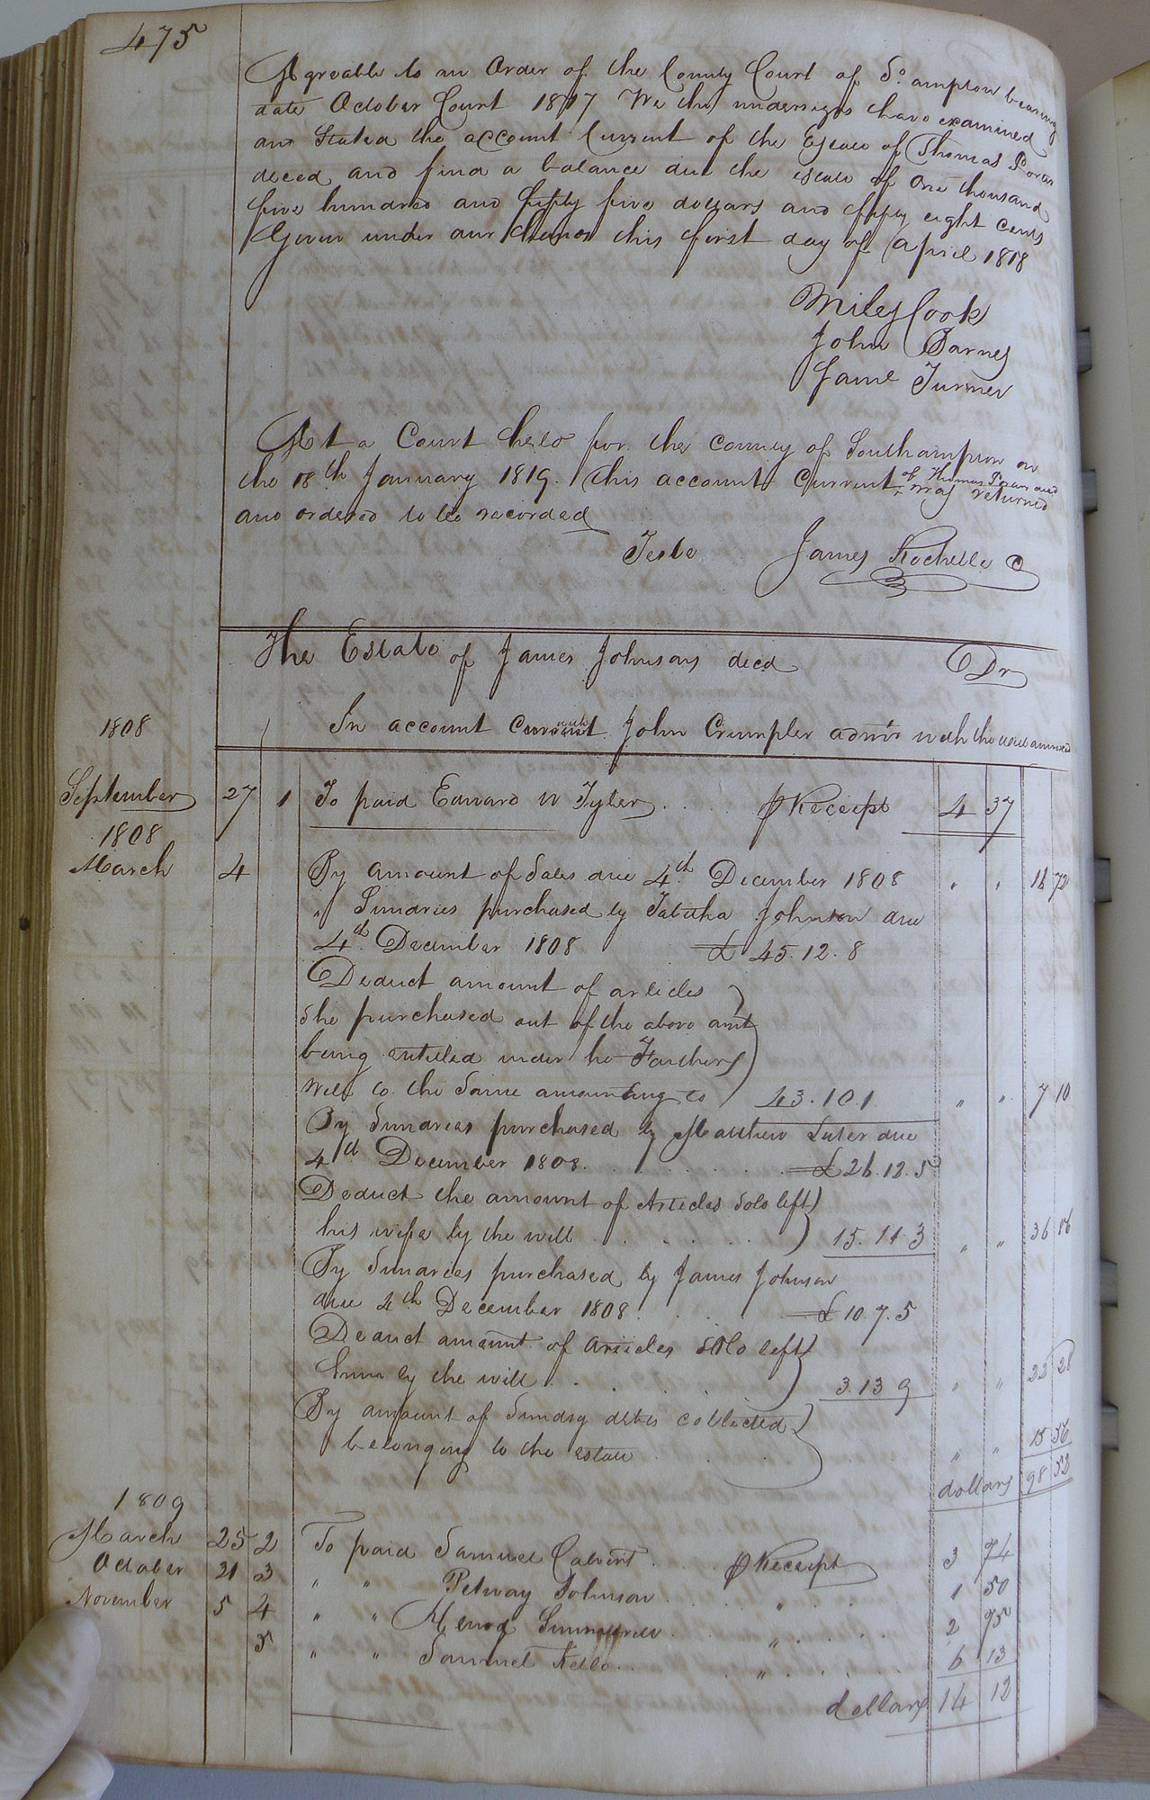 475
Agreable to an Order of the County Court of So ampton bearing
date October Court 1817 We the undersigns have examined
and Stated the account Current of the Estate of Thomas
deced and find a balance due the estate of One thousand
five hundred and fifty five dollars and fifty eight cents
Given under our Hands this first day of April 1818
Miley Cook
John Barnes
Turner
At a Court held for the county of Southampton on
the 18th January 1819. This account Current of Thomas was returned
and ordered to be recorded
Teste James Rochelle C
The Estate of James Johnsons decd Dr
1808 In account Current with John Crumpler admr with the will annexed
September 27 1 To paid Edward W Tyler . . ℘ Receipt 4 37
1808
March 4 By amount of Sales due 4th December 1808 " "
" Sundries purchased by Tabitha Johnson due
4th December 1808 £ 45.12.8
Deduct amount of articles
She purchased out of the above amt
being entitled under he Fathers
Will to the Same amounting to 43.10.1 " " 7 10
By Sundries purchased by Matthew Luter due
4th December 1808 £ 26.12.5
Deduct the amount of Articles Sold left
his wife by the will 15.11.3 " " 36
By Sundries purchased by James Johnson
due 4th December 1808 £ 10.7.5
Deduct amount of articles Sold left
him by the will 3.13 9 " " 22 28
By amount of Sundry debts collected
belonging to the estate " "
dollars 98 52
1809
March 25 2 To paid Samuel Calvert . ℘ Receipt 3 94
October 21 3 " " Petway Johnson . . " . . 1 50
November 5 4 " " . " . . 2 95
5 " " Samuel Kello . . " . . 6 13
dollars 14 12